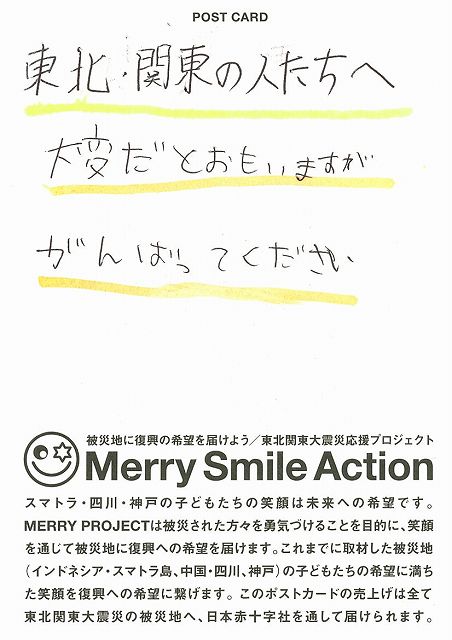 POST CARD
東北・関東の人たちへ
大変だとおもいますが
がんばってください
被災地に復興の希望を届けよう／東北関東大震災応援プロジェクト
Merry Smile Action
スマトラ・四川・神戸の子どもたちの笑顔は未来への希望です。
MERRY PROJECTは被災された方々を勇気づけることを目的に、笑顔
を通じて被災地に復興への希望を届けます。これまでに取材した被災地
（インドネシア・スマトラ島、中国・四川、神戸）の子どもたちの希望に満ち
た笑顔を復興への希望に繋げます。このポストカードの売上げは全て
東北関東大震災の被災地へ、日本赤十字社を通して届けられます。